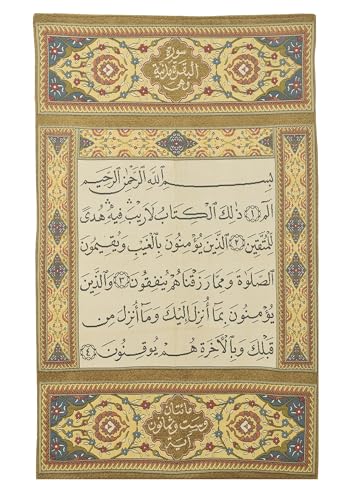 سورة
البقرة مدنية
وهي
بسم الله الرحمن الرحيم
الم ﴿١﴾ ذلك الكتاب لا ريب فيه هدى
للمتقين ﴿٢﴾ الذين يؤمنون بالغيب ويقيمون
الصلوة ومما رزقناهم ينفقون ﴿٣﴾ والذين
يؤمنون بما أنزل إليك وما أنزل من
قبلك وبالآخرة هم يوقنون ﴿٤﴾
مائتان
وست وثمانون
آية